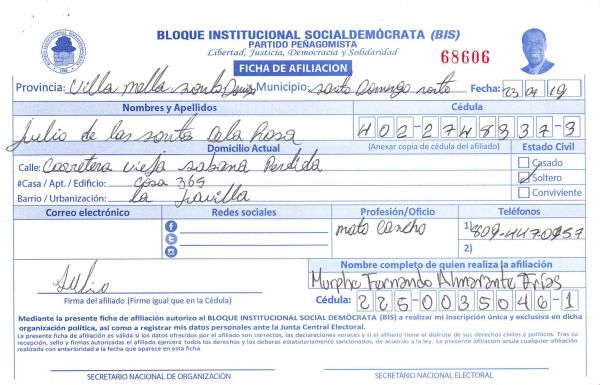 BLOQUE INSTITUCIONAL SOCIALDEMÓCRATA (BIS)
PARTIDO PEÑAGOMISTA
Libertad, Justicia, Democracia y Solidaridad
68606
FICHA DE AFILIACION
Provincia: Villa mella santo Domingo Municipio: santo Domingo norte Fecha: 23 01 19
Nombres y Apellidos Cédula
Julio de los santo dela Rosa 402-2748337-3
Domicilio Actual (Anexar copia de cédula del afiliado) Estado Civil
Calle: Carretera vieja sabana Perdida Casado
#Casa / Apt. / Edificio: casa 365 Soltero
Barrio / Urbanización: la Conviviente
Correo electrónico Redes sociales Profesión/Oficio Teléfonos
moto concho 1) 809-447-0957
2)
Nombre completo de quien realiza la afiliación
Julio Murphe Fernando Almarante Frías
Firma del afiliado (Firme igual que en la Cédula) Cédula: 225-0035046-1
Mediante la presente ficha de afiliación autorizo al BLOQUE INSTITUCIONAL SOCIAL DEMÓCRATA (BIS) a realizar mi inscripción única y exclusiva en dicha
organización política, así como a registrar mis datos personales ante la Junta Central Electoral.
La presente ficha de afiliación es válida si los datos ofrecidos por el afiliado son correctos, las declaraciones veraces y si el afiliado tiene el disfrute de sus derechos civiles y políticos. Tras su
recepción, sello y firmas autorizadas el afiliado ejercerá todos los derechos y los deberes estatutariamente sancionados, de acuerdo a la ley. La presente afiliación anula cualquier afiliación
realizada con anterioridad a la fecha que aparece en esta ficha.
SECRETARIO NACIONAL DE ORGANIZACIÓN SECRETARIO NACIONAL ELECTORAL